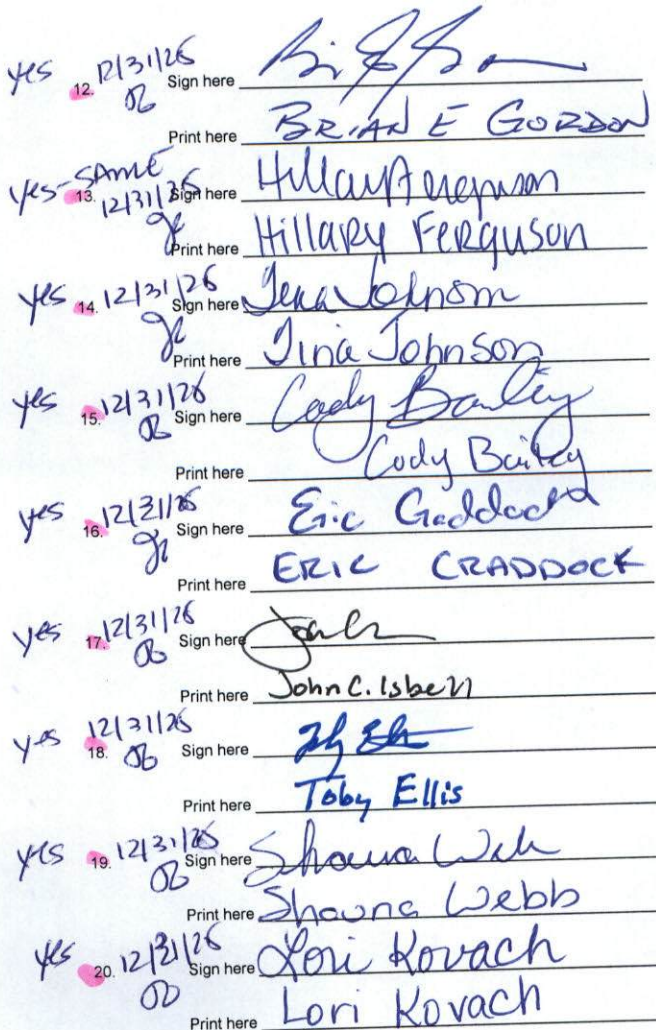 yes 12. 12/31/26 Sign here
Print here BRIAN E GORDON
yes-SAME 13. 12/31/26 Sign here Hillary Ferguson
Print here Hillary Ferguson
yes 14. 12/31/26 Sign here Tina Johnson
Print here Tina Johnson
yes 15. 12/31/26 Sign here Cody Bailey
Print here Cody Bailey
yes 16. 12/31/26 Sign here Eric Craddock
Print here ERIC CRADDOCK
yes 17. 12/31/26 Sign here
Print here John C. Isbell
yes 18. 12/31/26 Sign here
Print here Toby Ellis
yes 19. 12/31/26 Sign here Shauna
Print here Shauna Webb
yes 20. 12/31/26 Sign here Lori Kovach
Print here Lori Kovach